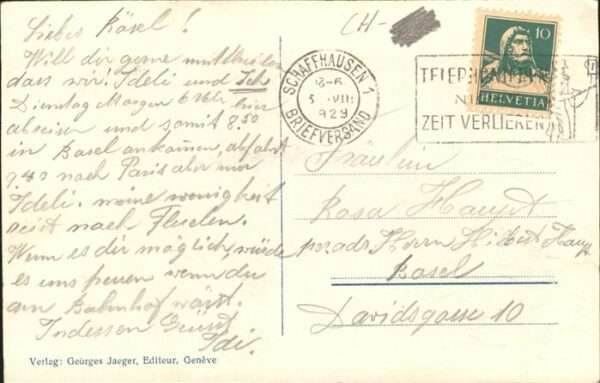 Liebes Käsel!
Will dir gerne mitteilen
dass wir! Ideli und Ich
Dienstag Morgen 6 Uhr hier
abreisen und somit 8.50
in Basel ankommen, abfahrt
9.40 nach Paris aber nur
Ideli. meine wenigkeit
reist nach Fluelen.
Wenn es dir möglich, würde
es uns freuen wenn du
am Bahnhof wärst.
Indessen Grüsst
Idi.
Verlag: Georges Jaeger, Editeur, Genève
CH-
SCHAFFHAUSEN 1
VIII
1929
BRIEFVERSAND
10
HELVETIA
ZEIT VERLIEREN
Fräulein
Rosa Haupt
p. adr. Herrn Haupt
Basel
Davidsgasse 10